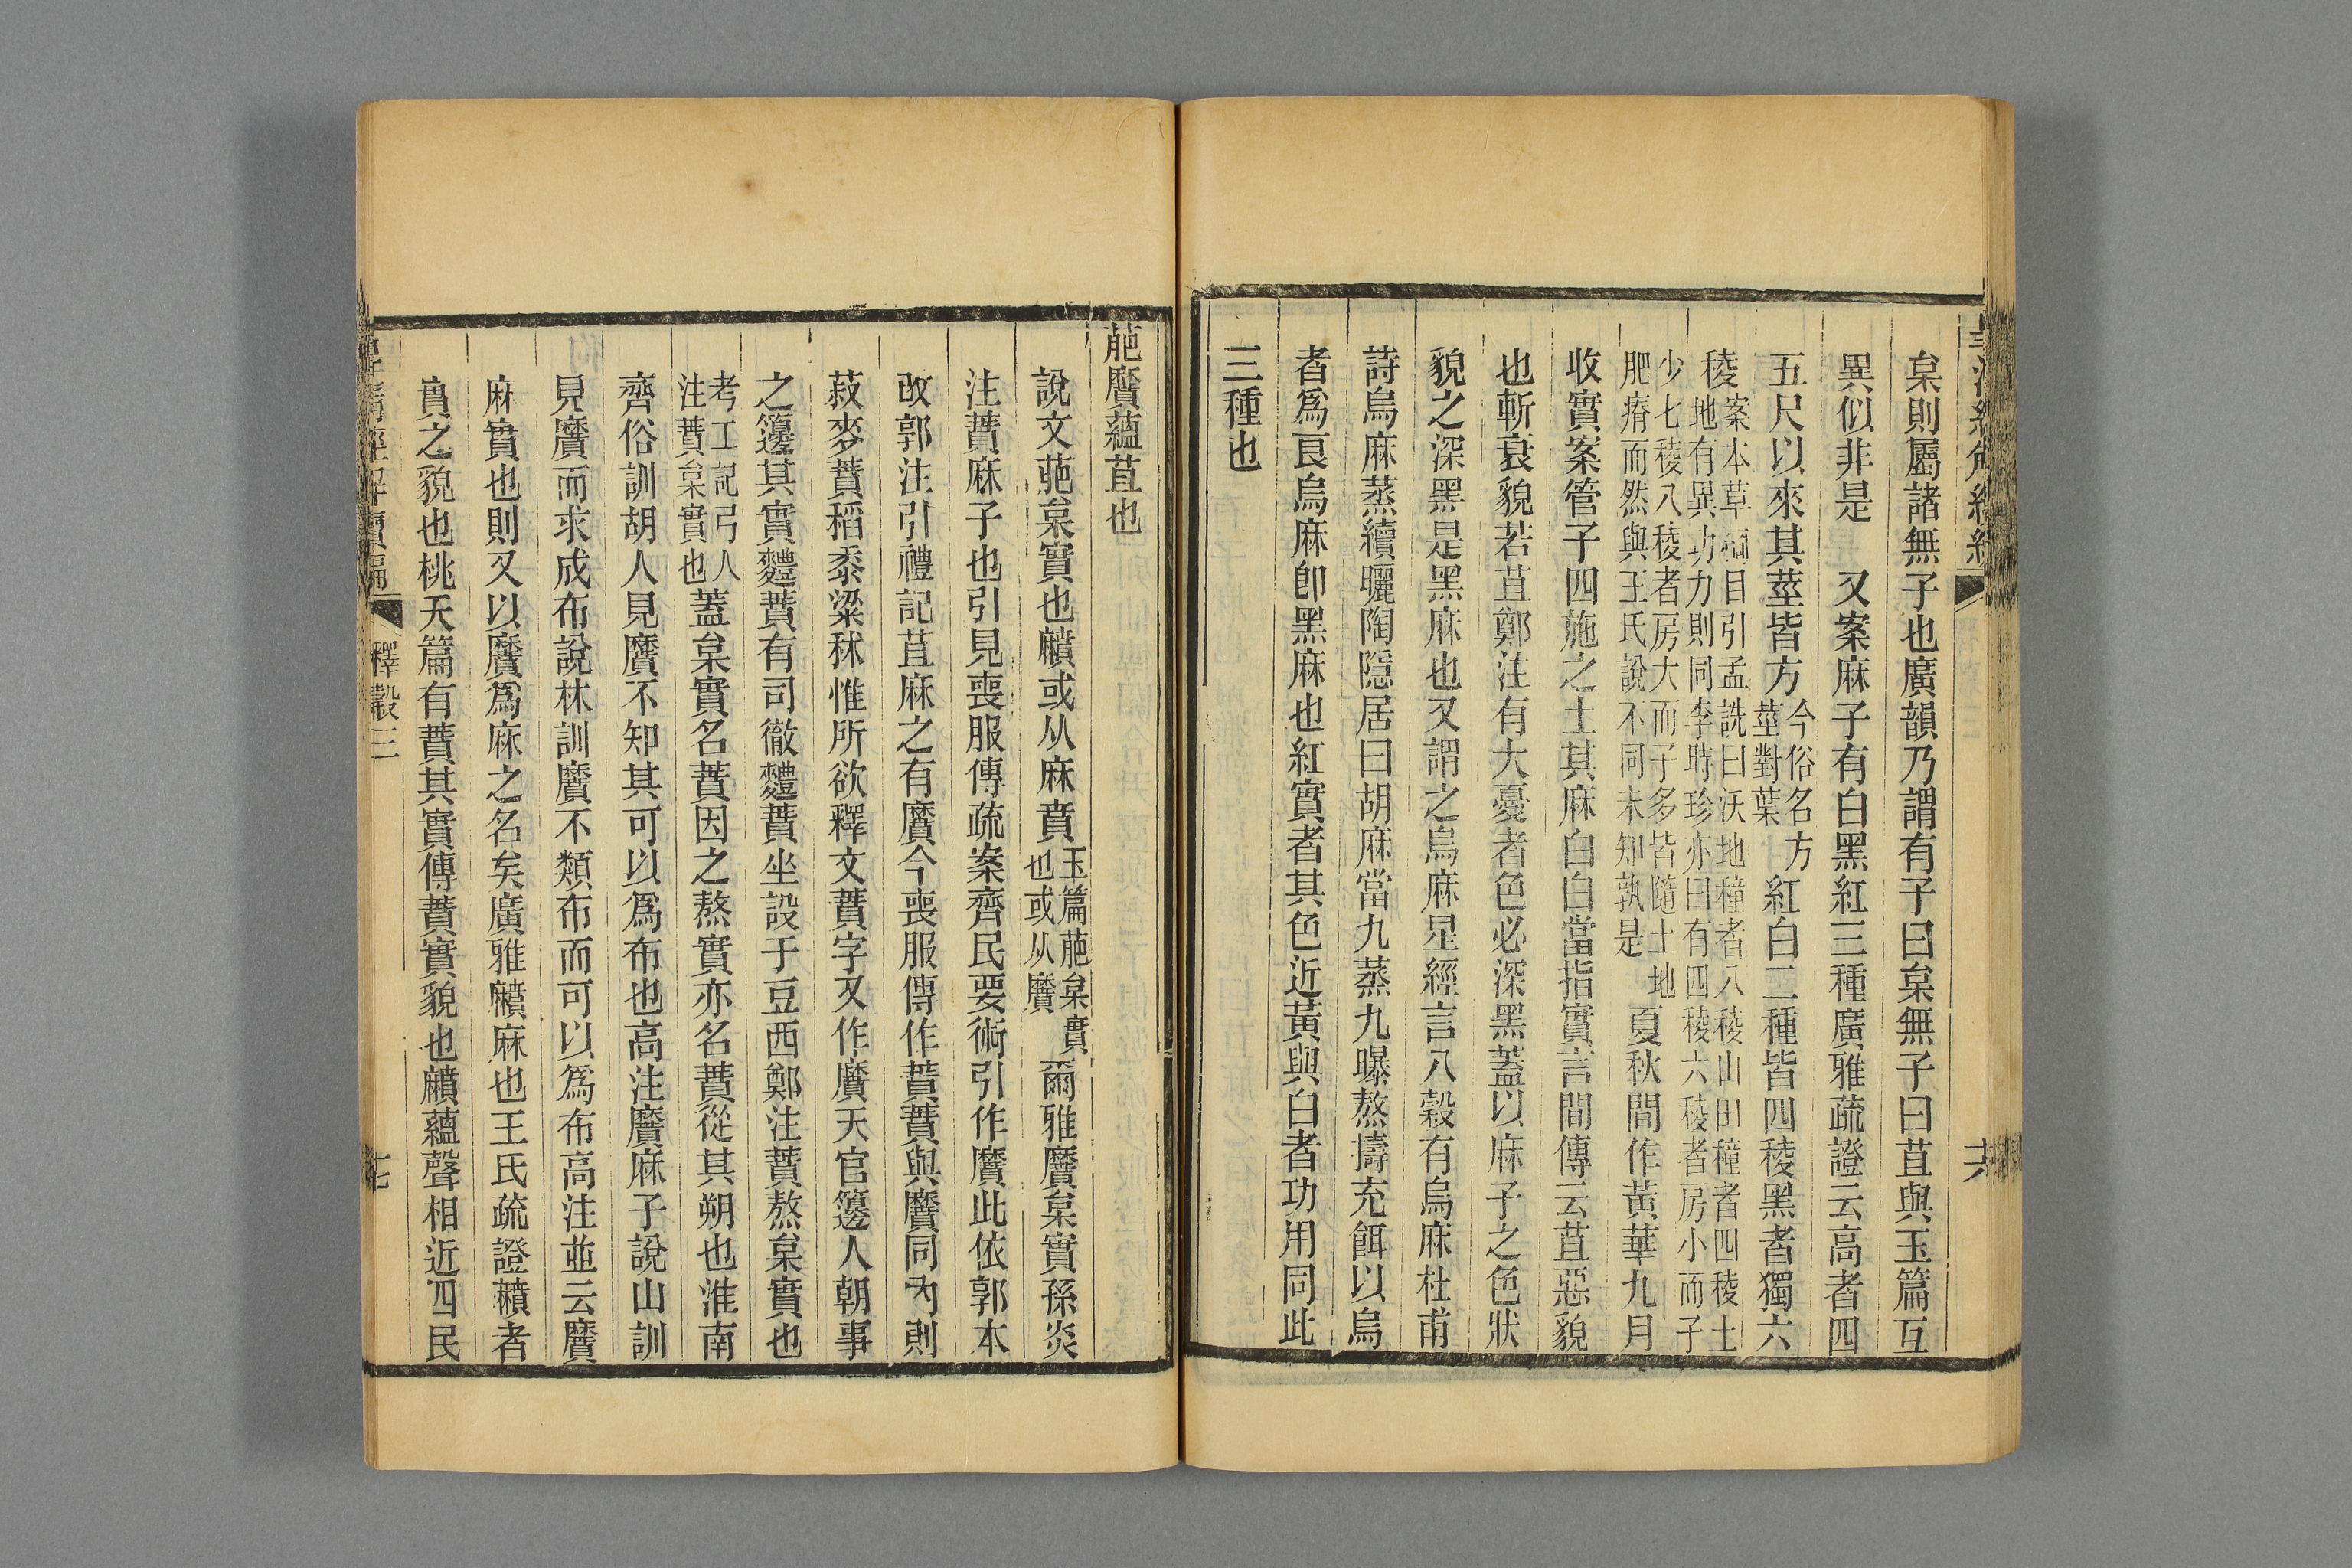 枲則屬諸無子也廣韻乃謂有子曰枲無子曰苴與玉篇互
異似非是　又案麻子有白黑紅三種廣雅疏證云高者四
五尺以來其莖皆方今俗名方莖對葉紅白二種皆四稜黑者獨六
稜案本草綱目引孟詵曰沃地種者八稜山田種者四稜土地有異功力則同李時珍亦曰有四稜六稜者房小而子
少七稜八稜者房大而子多皆隨土地肥瘠而然與王氏說不同未知孰是夏秋間作黃華九月
收實案管子四施之土其麻白白當指實言間傳云苴惡貌
也斬衰貌若苴鄭注有大憂者色必深黑蓋以麻子之色狀
貌之深黑是黑麻也又謂之烏麻星經言八穀有烏麻杜甫
詩烏麻蒸續曬陶隱居曰胡麻當九蒸九曝熬擣充餌以烏
者爲良烏麻卽黑麻也紅實者其色近黃與白者功用同此
三種也
六
萉黂蘊苴也
說文萉枲實也䵿或从麻賁玉篇萉枲實也或从黂爾雅黂枲實孫炎
注蕡麻子也引見喪服傳疏案齊民要術引作黂此依郭本
改郭注引禮記苴麻之有黂今喪服傳作蕡蕡與黂同內則
菽麥蕡稻黍粱秫惟所欲釋文蕡字又作黂天官籩人朝事
之籩其實麷蕡有司徹麷蕡坐設于豆西鄭注蕡熬枲實也
考工記弓人注蕡枲實也蓋枲實名蕡因之熬實亦名蕡從其朔也淮南
齊俗訓胡人見黂不知其可以爲布也高注黂麻子說山訓
見黂而求成布說林訓黂不類布而可以爲布高注並云黂
麻實也則又以黂爲麻之名矣廣雅䵿麻也王氏疏證䵿者
實之貌也桃夭篇有蕡其實傳蕡實貌也䵿蘊聲相近四民
皇清經解續編　釋穀三